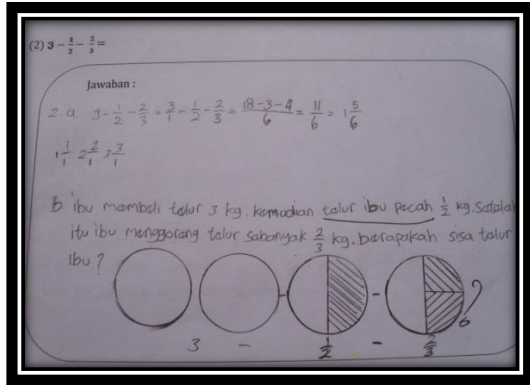 (2) 3 - 1/2 - 2/3 =
Jawaban :
2. a. 3 - 1/2 - 2/3 = 3/1 - 1/2 - 2/3 = 18-3-4/6 = 11/6 = 1 5/6
1 1/1 2 2/1 3 3/1
b ibu membeli telur 3 kg. kemudian telur ibu pecah 1/2 kg. setelah
itu ibu menggoreng telur sebanyak 2/3 kg. berapakah sisa telur
ibu ?
3 - 1/2 - 2/3